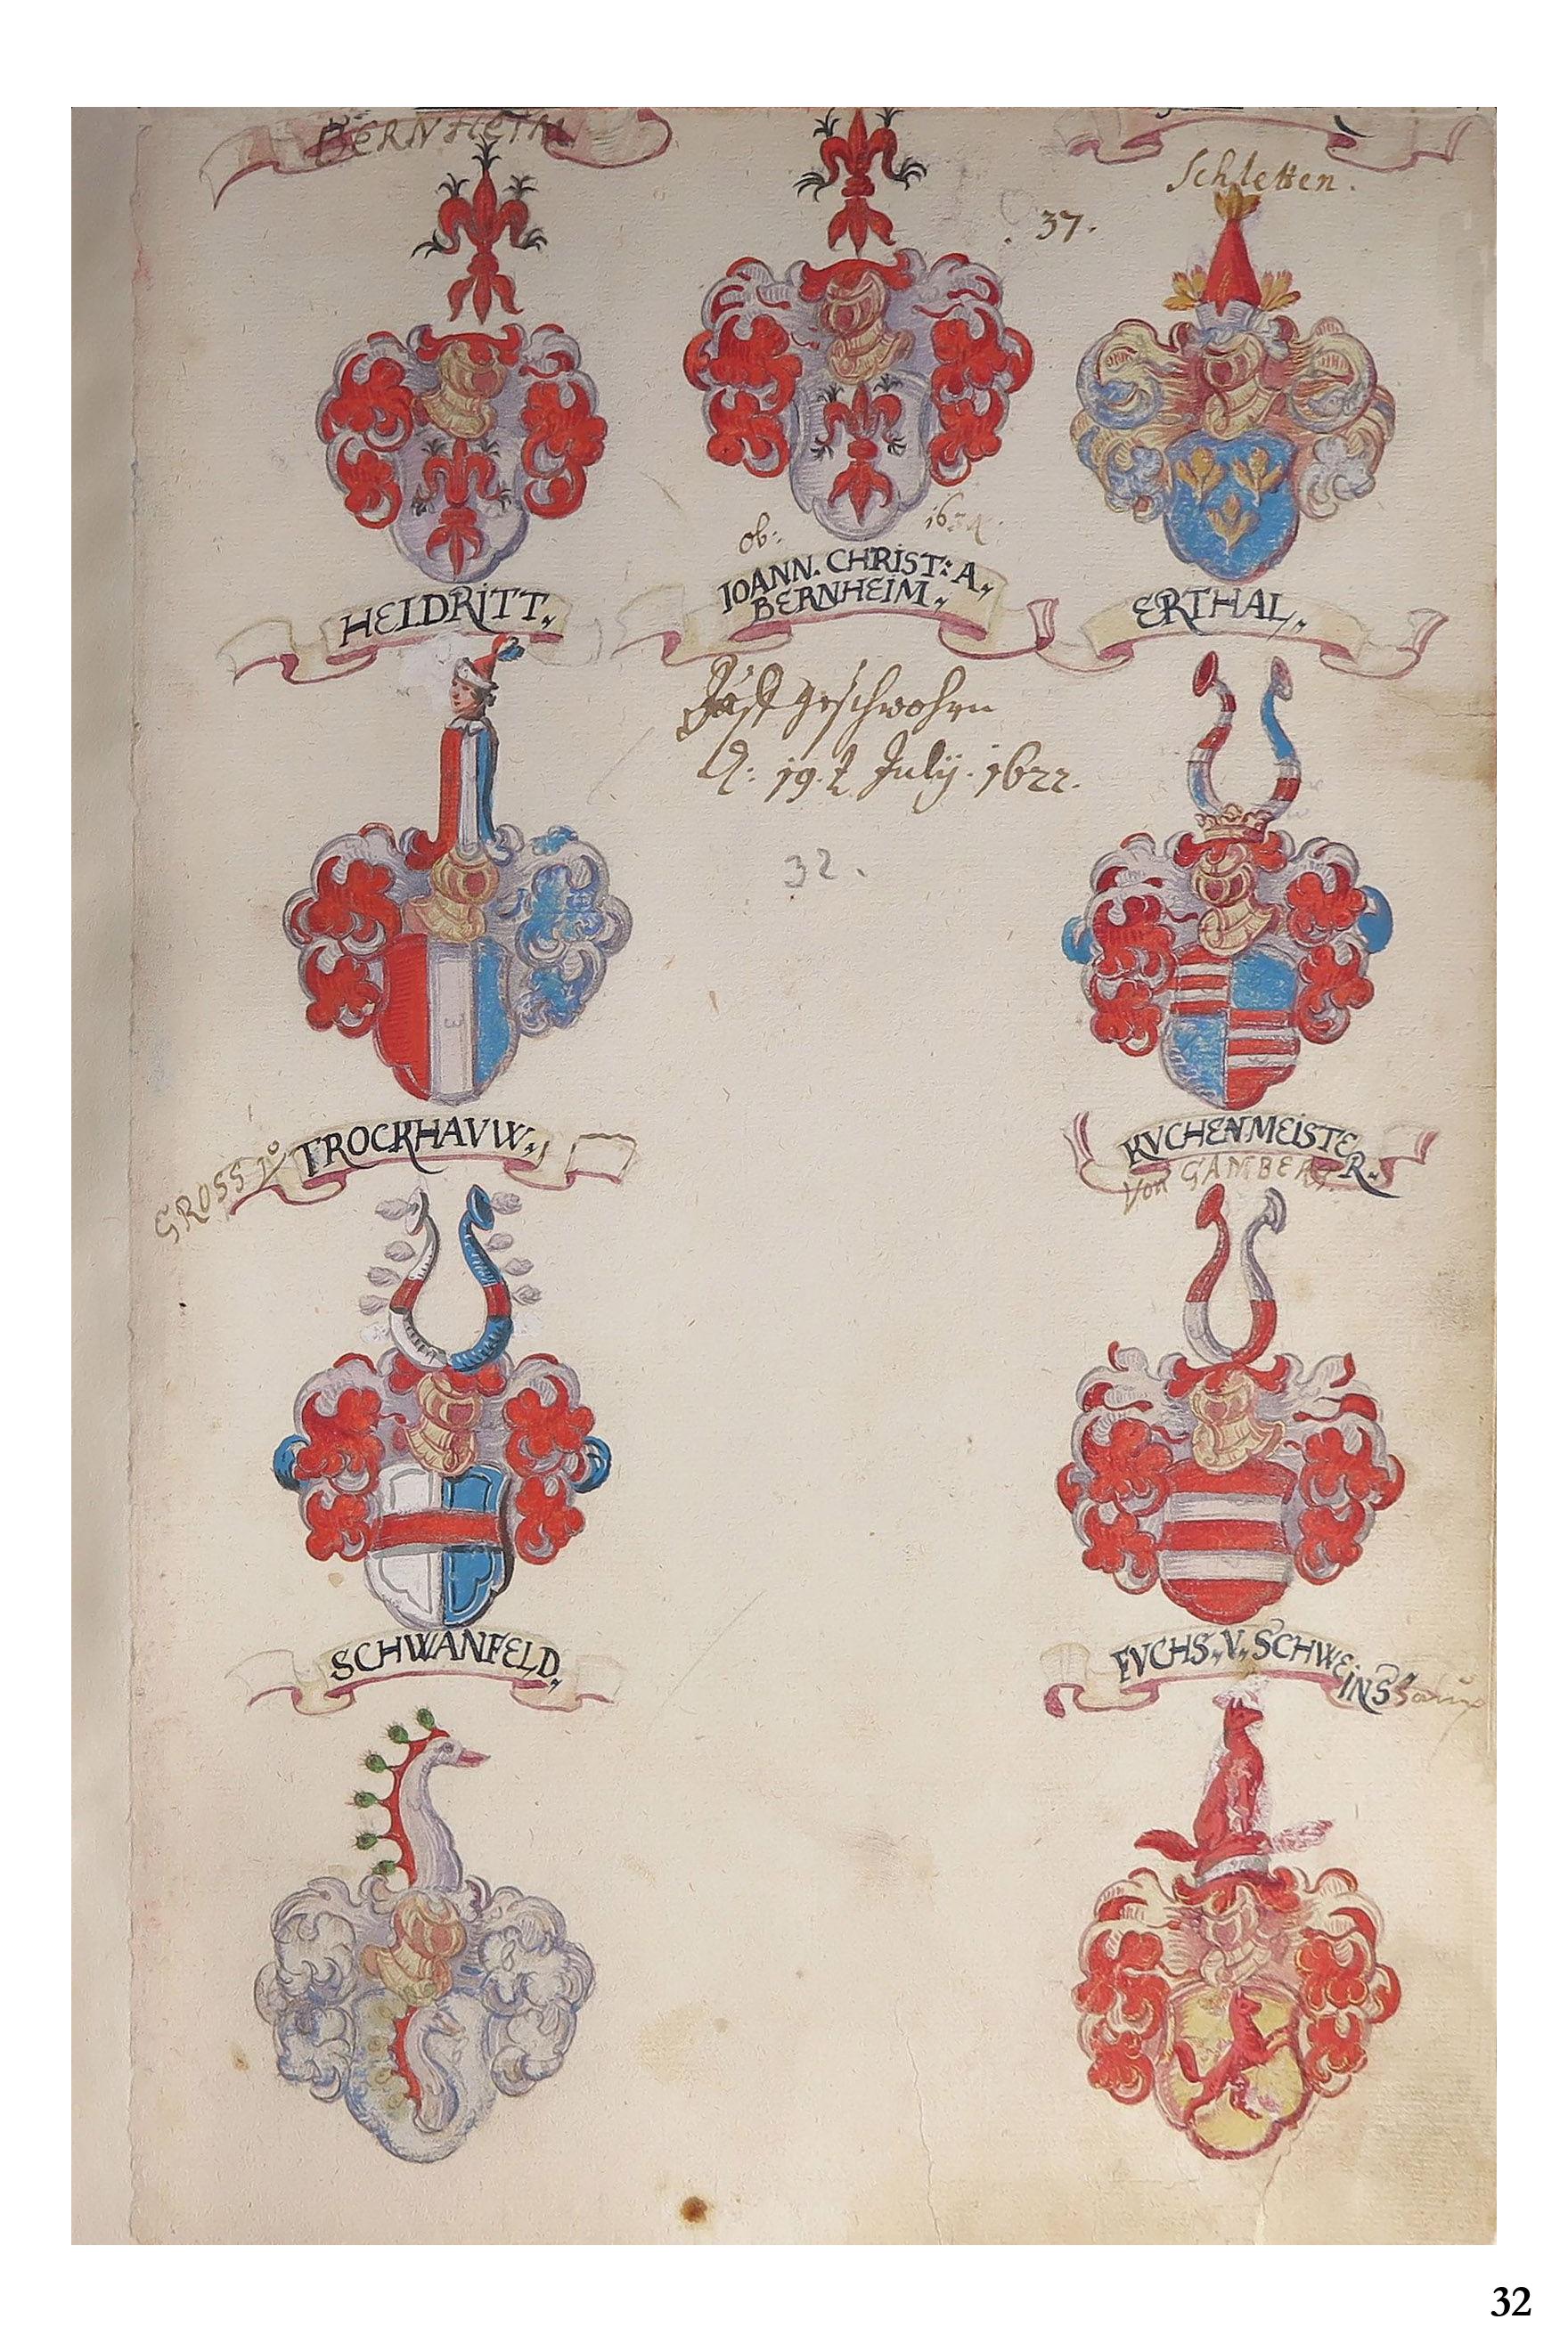 BERNHEIM
Schletten.
37.
ob: 163
HEIDRITT.
IOANN. CHRIST: A,
BERNHEIM.
ERTHAL.
geschwohrn
A: 19. July. 1622.
32.
GROSS TROCKHAVW.
KVCHENMEISTE
R.
von GAMBERG.
SCHWANFELD,
FVCHS. V. SCHWE
INS
32